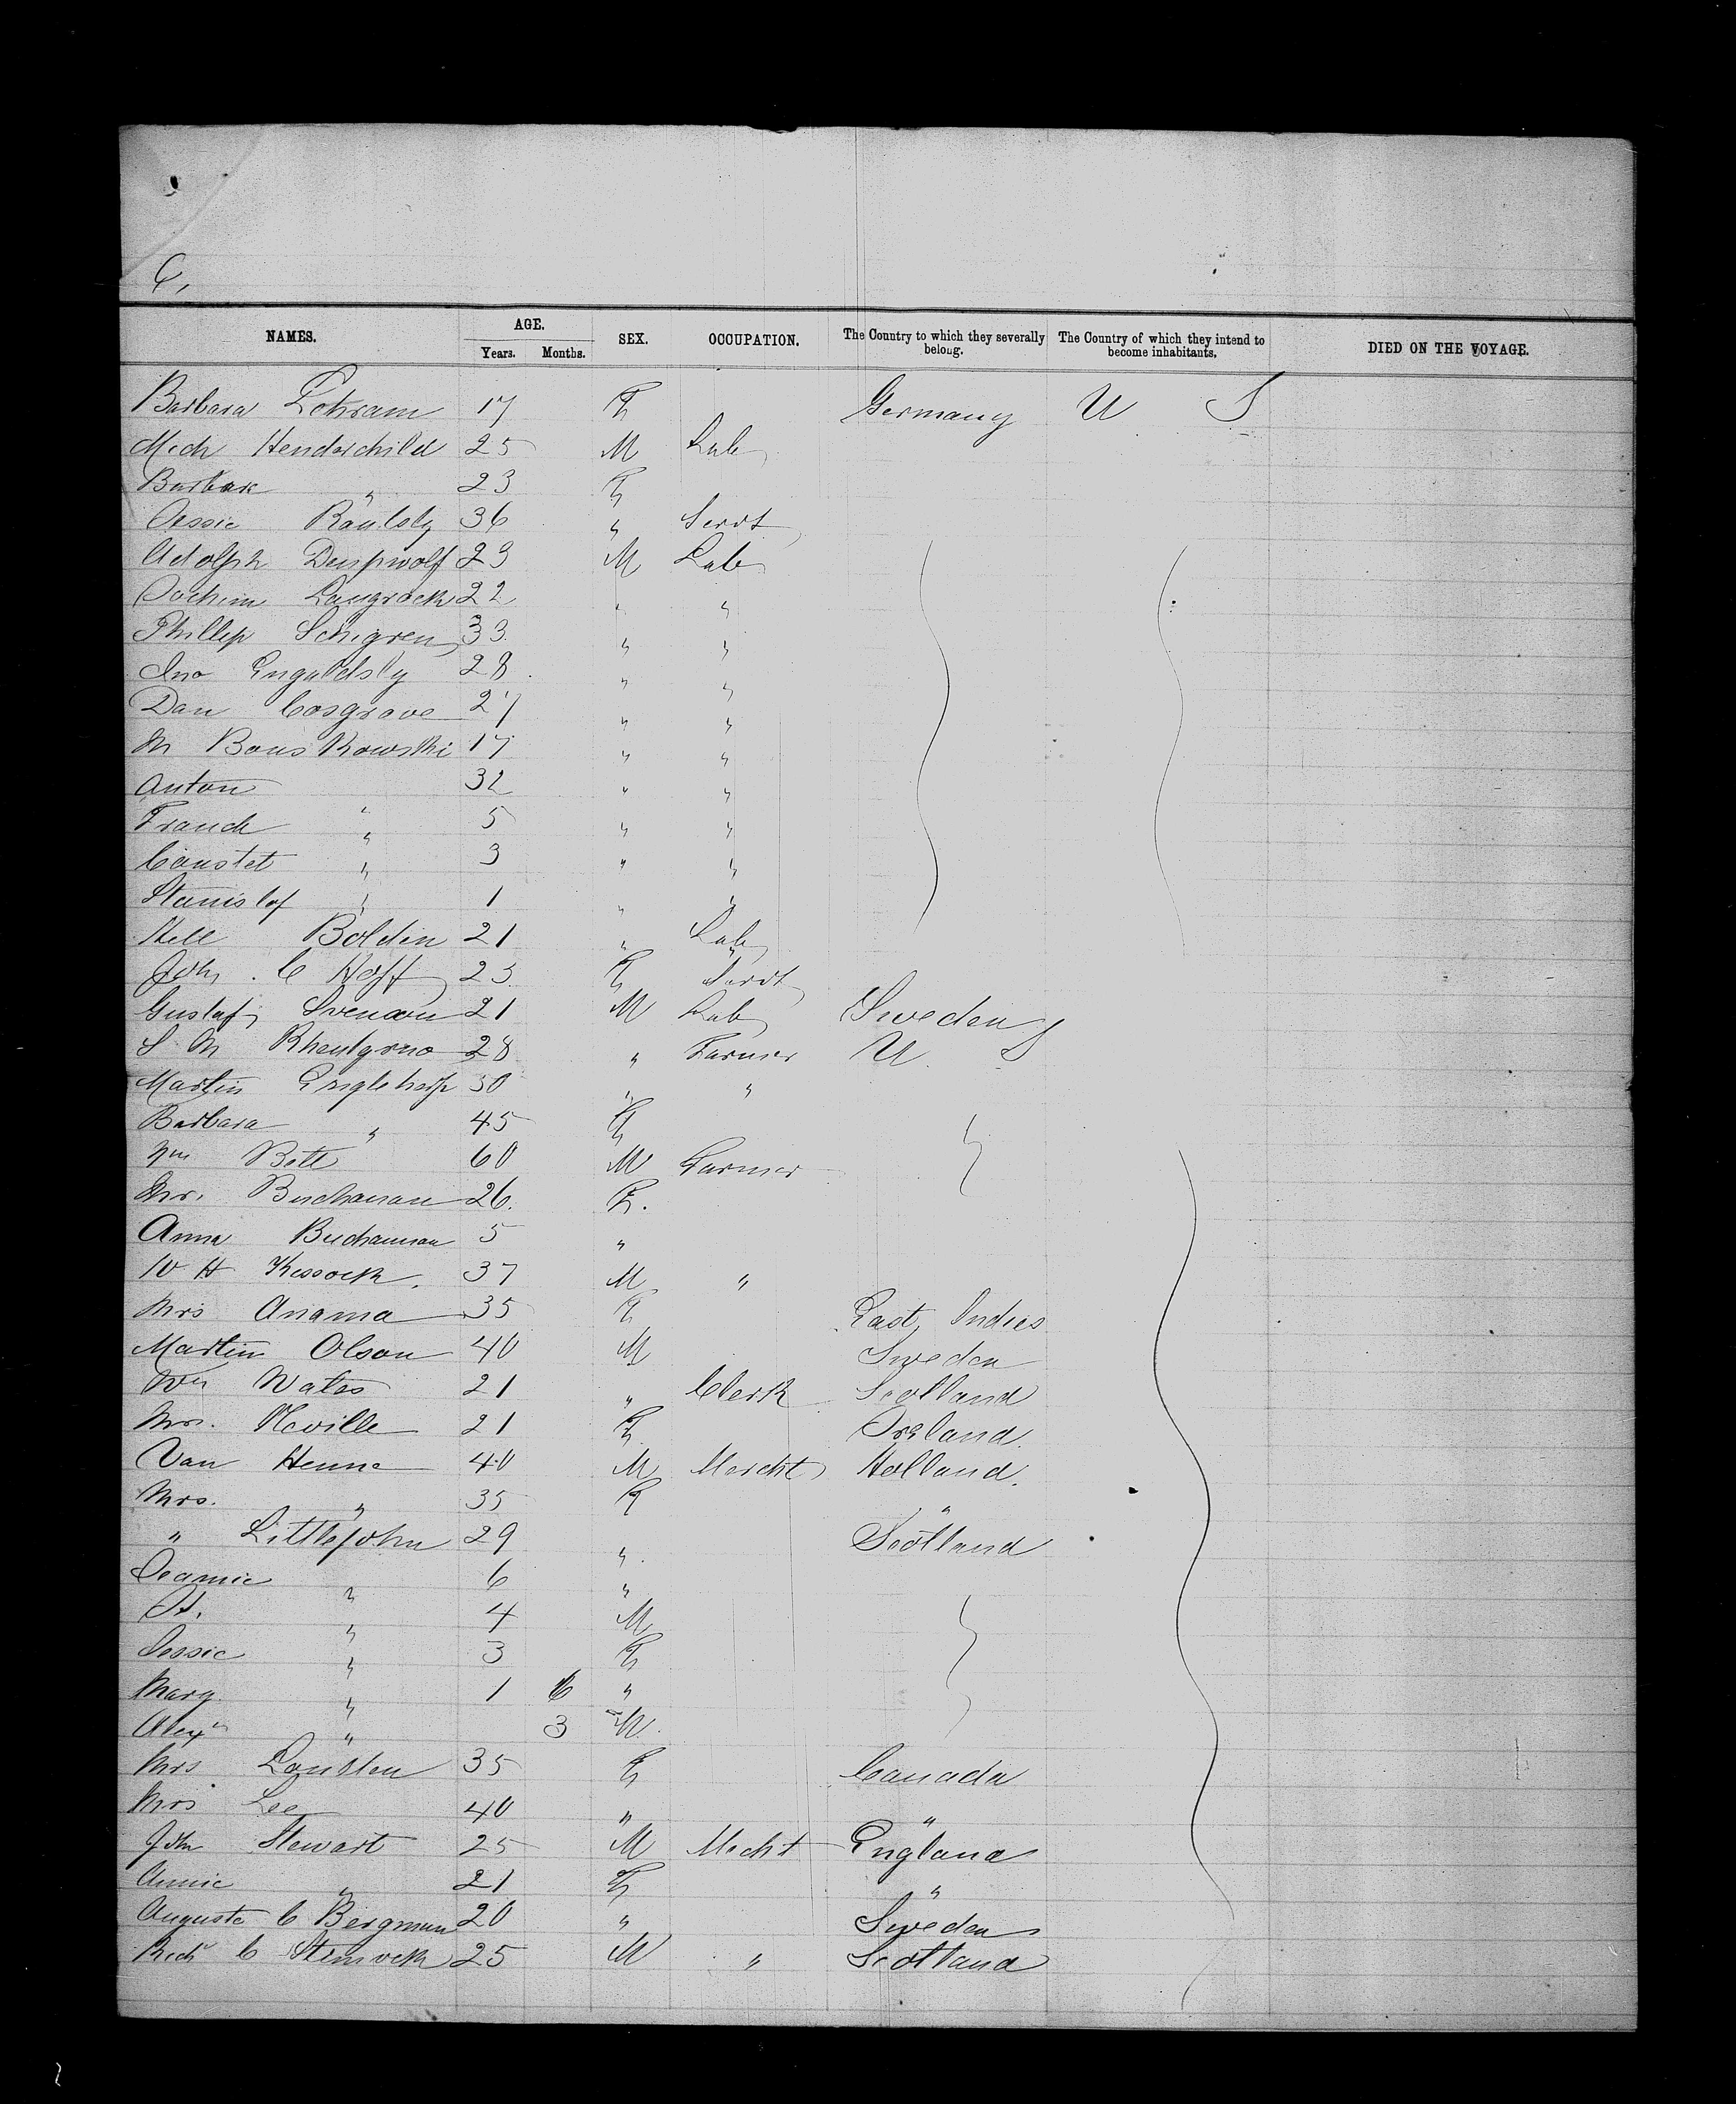 6,
NAMES. AGE. Years. Months. SEX. OCCUPATION. The Country to which they severally belong. The Country of which they intend to become inhabitants. DIED ON THE VOYAGE.
Barbara 17 F Germany U S
Mich Hendschild 25 M Lab
Barbar " 23 F
36 " Servt
Adolph 23 M Lab
Jochim Langrock 22 " "
Phillip 33 " "
Jno 28 " "
Dan Cosgrove 27 " "
M 17 " "
Anton " 32 " "
Franck " 5 " "
" 3 " "
Stanislaf " 1 " "
Boldin 21 " Lab
John C Hoff 23 F Servt
Gustaf 21 M Lab Sweden
S M 28 " Farmer U S
Martin 50 " "
Barbara " 45 F
60 M Farmer
Mrs. Buchanan 26. F.
Anna Buchannan 5 "
W H Kissock. 37 M "
Mrs Anama 35 F East Indies
Martin Olson 40 M Sweden
Wm Wates 21 " Clerk Scotland
Mrs. Neville 21 F Ireland.
Van Henne 40 M Marcht Holland.
Mrs. " 35 F "
" Littlejohn 29 " Scotland
Jeamie " 6 "
" 4 M
Jessie " 3 F
Marg " 1 6 "
Alexr " 3 M.
Mrs 35 F Canada
Mrs Lee 40 " "
John Stewart 25 M Mecht England
Annie " 21 F "
Augusta C Bergman 20 " Sweden
Richd C 25 M " Scotland